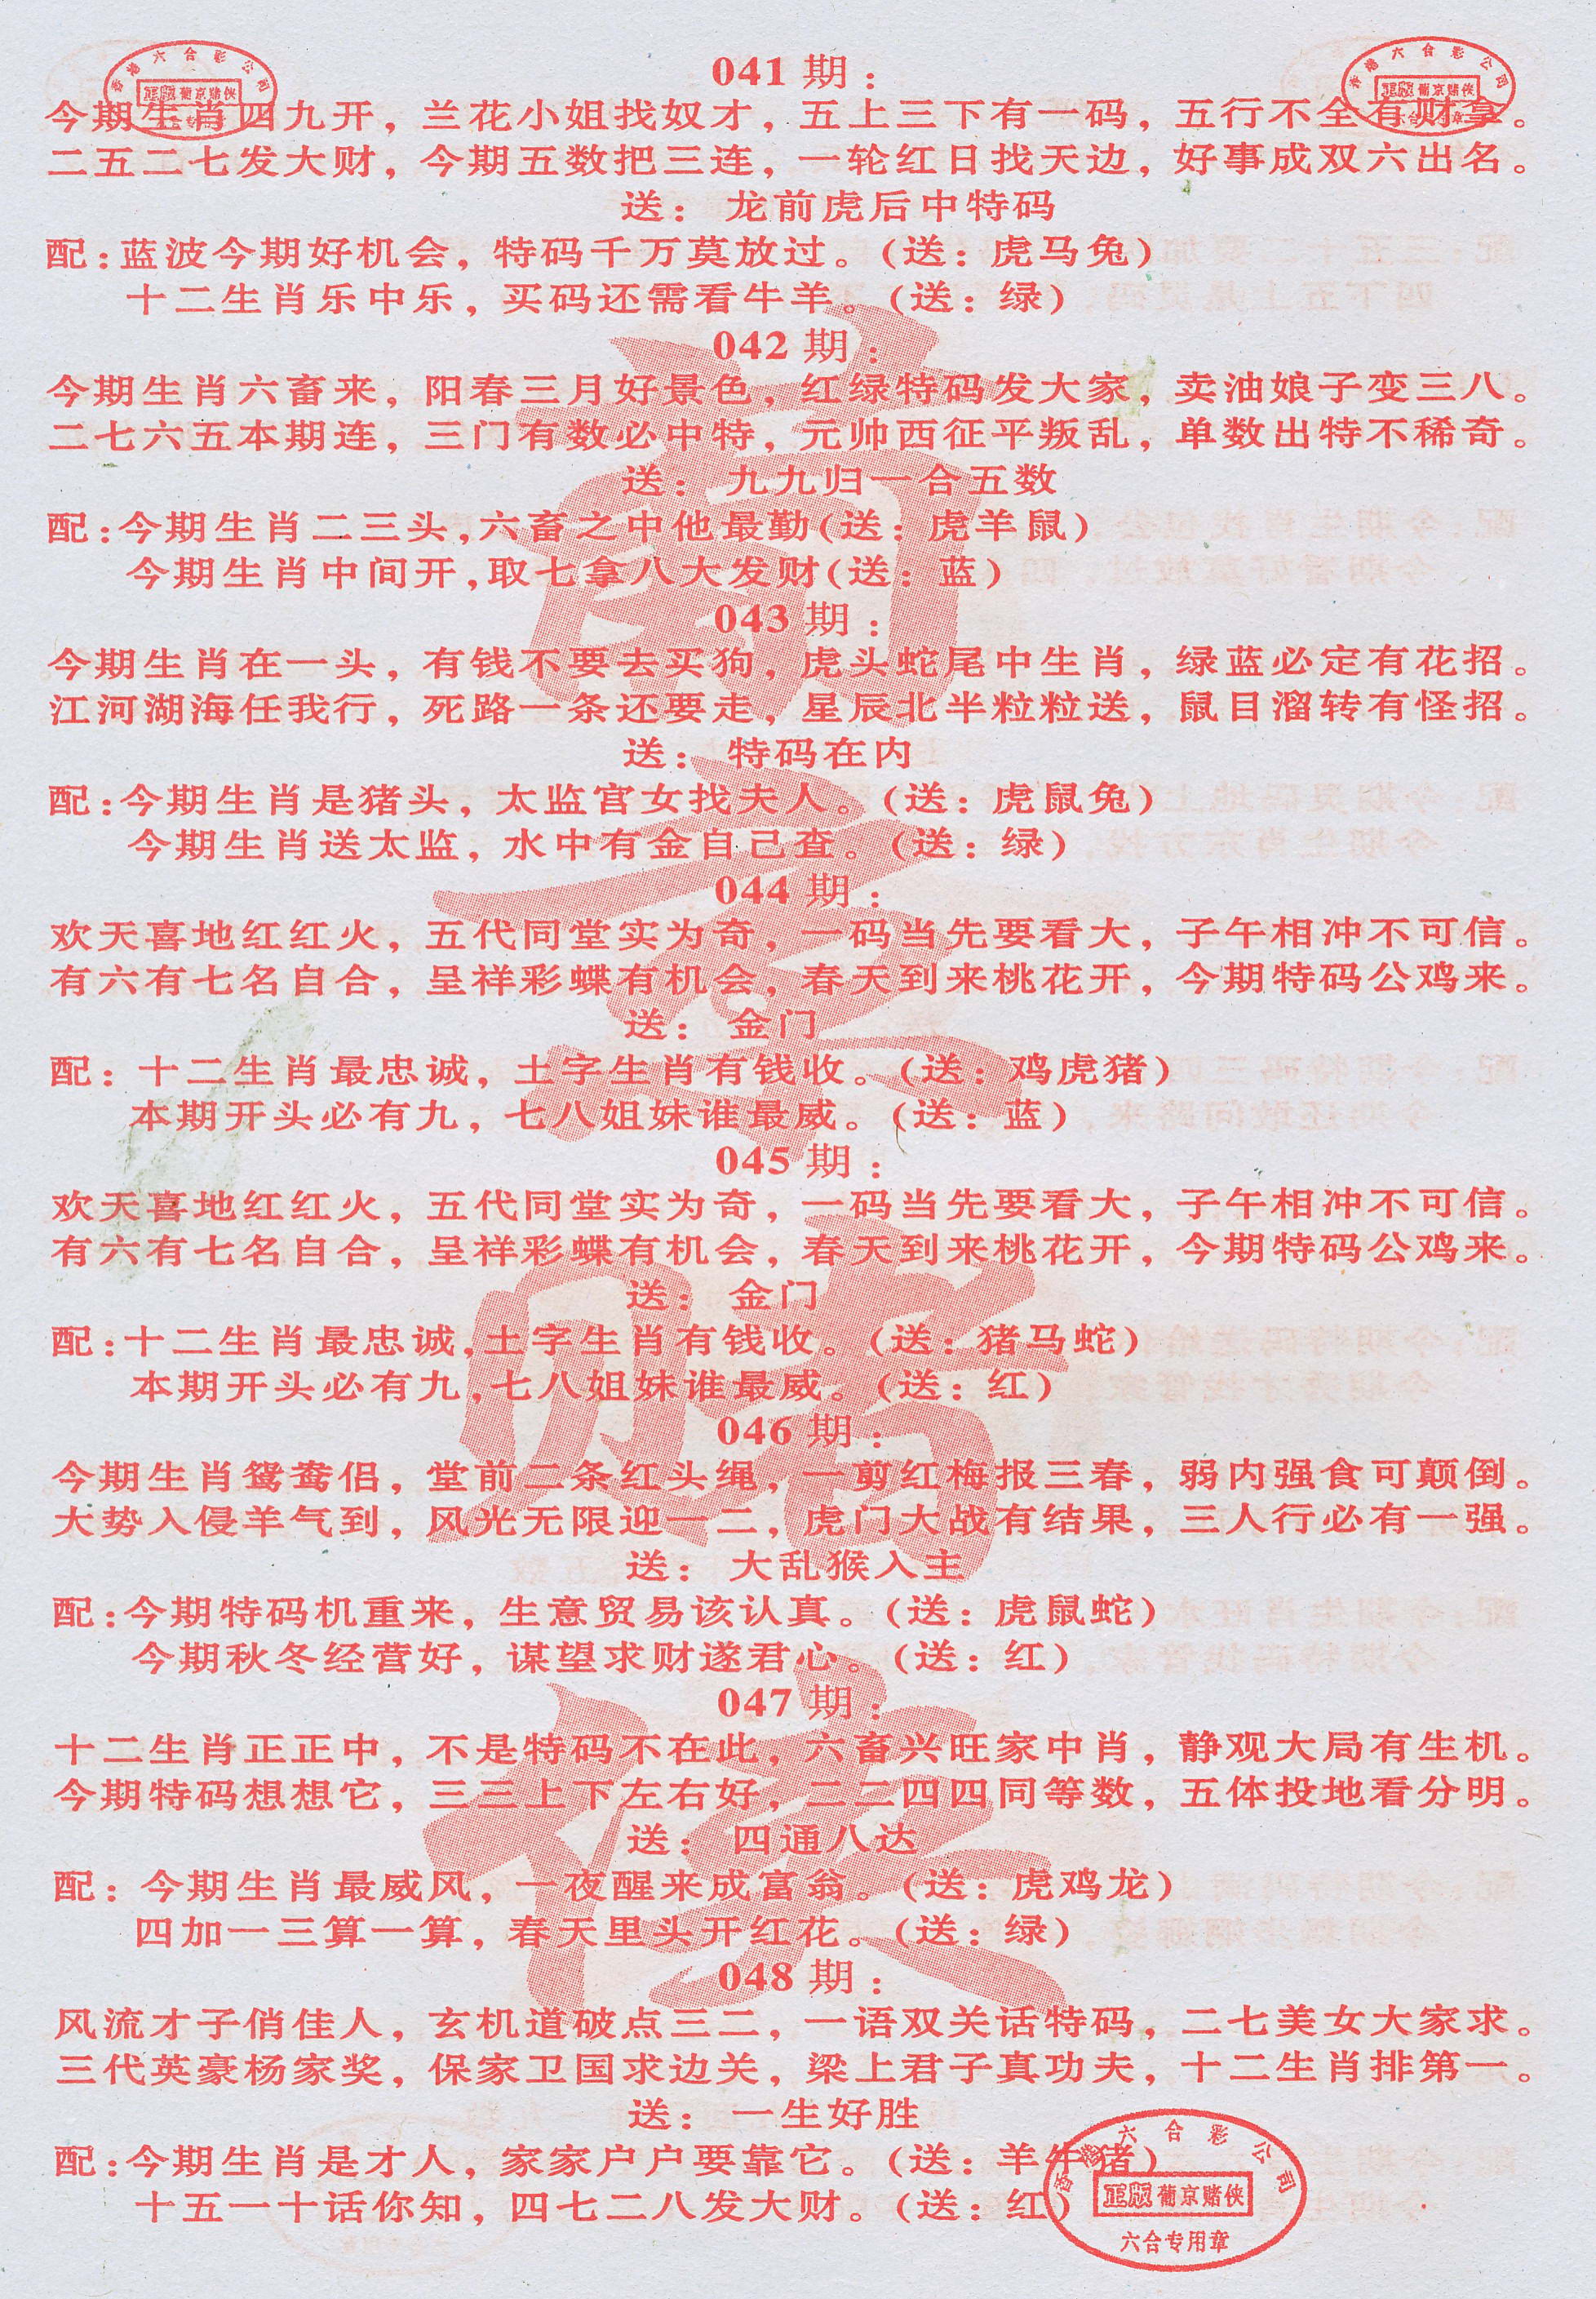 香港六合彩公司
正版 葡京赌侠
六合专用章
香港六合彩公司
正版 葡京赌侠
六合专用章
041期：
今期生肖四九开，兰花小姐找奴才，五上三下有一码，五行不全有财拿。
二五二七发大财，今期五数把三连，一轮红日找天边，好事成双六出名。
送：龙前虎后中特码
配：蓝波今期好机会，特码千万莫放过。（送：虎马兔）
十二生肖乐中乐，买码还需看牛羊。（送：绿）
042期：
今期生肖六畜来，阳春三月好景色，红绿特码发大家，卖油娘子变三八。
二七六五本期连，三门有数必中特，元帅西征平叛乱，单数出特不稀奇。
送：九九归一合五数
配：今期生肖二三头，六畜之中他最勤（送：虎羊鼠）
今期生肖中间开，取七拿八大发财（送：蓝）
043期：
今期生肖在一头，有钱不要去买狗，虎头蛇尾中生肖，绿蓝必定有花招。
江河湖海任我行，死路一条还要走，星辰北半粒粒送，鼠目溜转有怪招。
送：特码在内
配：今期生肖是猪头，太监宫女找夫人。（送：虎鼠兔）
今期生肖送太监，水中有金自己查。（送：绿）
044期：
欢天喜地红红火，五代同堂实为奇，一码当先要看大，子午相冲不可信。
有六有七名自合，呈祥彩蝶有机会，春天到来桃花开，今期特码公鸡来。
送：金门
配：十二生肖最忠诚，土字生肖有钱收。（送：鸡虎猪）
本期开头必有九，七八姐妹谁最威。（送：蓝）
045期：
欢天喜地红红火，五代同堂实为奇，一码当先要看大，子午相冲不可信。
有六有七名自合，呈祥彩蝶有机会，春天到来桃花开，今期特码公鸡来。
送：金门
配：十二生肖最忠诚，土字生肖有钱收。（送：猪马蛇）
本期开头必有九，七八姐妹谁最威。（送：红）
046期：
今期生肖鸳鸯侣，堂前二条红头绳，一剪红梅报三春，弱内强食可颠倒。
大势入侵羊气到，风光无限迎一二，虎门大战有结果，三人行必有一强。
送：大乱猴入主
配：今期特码机重来，生意贸易该认真。（送：虎鼠蛇）
今期秋冬经营好，谋望求财遂君心。（送：红）
047期：
十二生肖正正中，不是特码不在此，六畜兴旺家中肖，静观大局有生机。
今期特码想想它，三三上下左右好，二二四四同等数，五体投地看分明。
送：四通八达
配：今期生肖最威风，一夜醒来成富翁。（送：虎鸡龙）
四加一三算一算，春天里头开红花。（送：绿）
048期：
风流才子俏佳人，玄机道破点三二，一语双关话特码，二七美女大家求。
三代英豪杨家奖，保家卫国求边关，梁上君子真功夫，十二生肖排第一。
送：一生好胜
配：今期生肖是才人，家家户户要靠它。（送：羊牛猪）
十五一十话你知，四七二八发大财。（送：红）
香港六合彩公司
正版 葡京赌侠
六合专用章
葡京赌侠